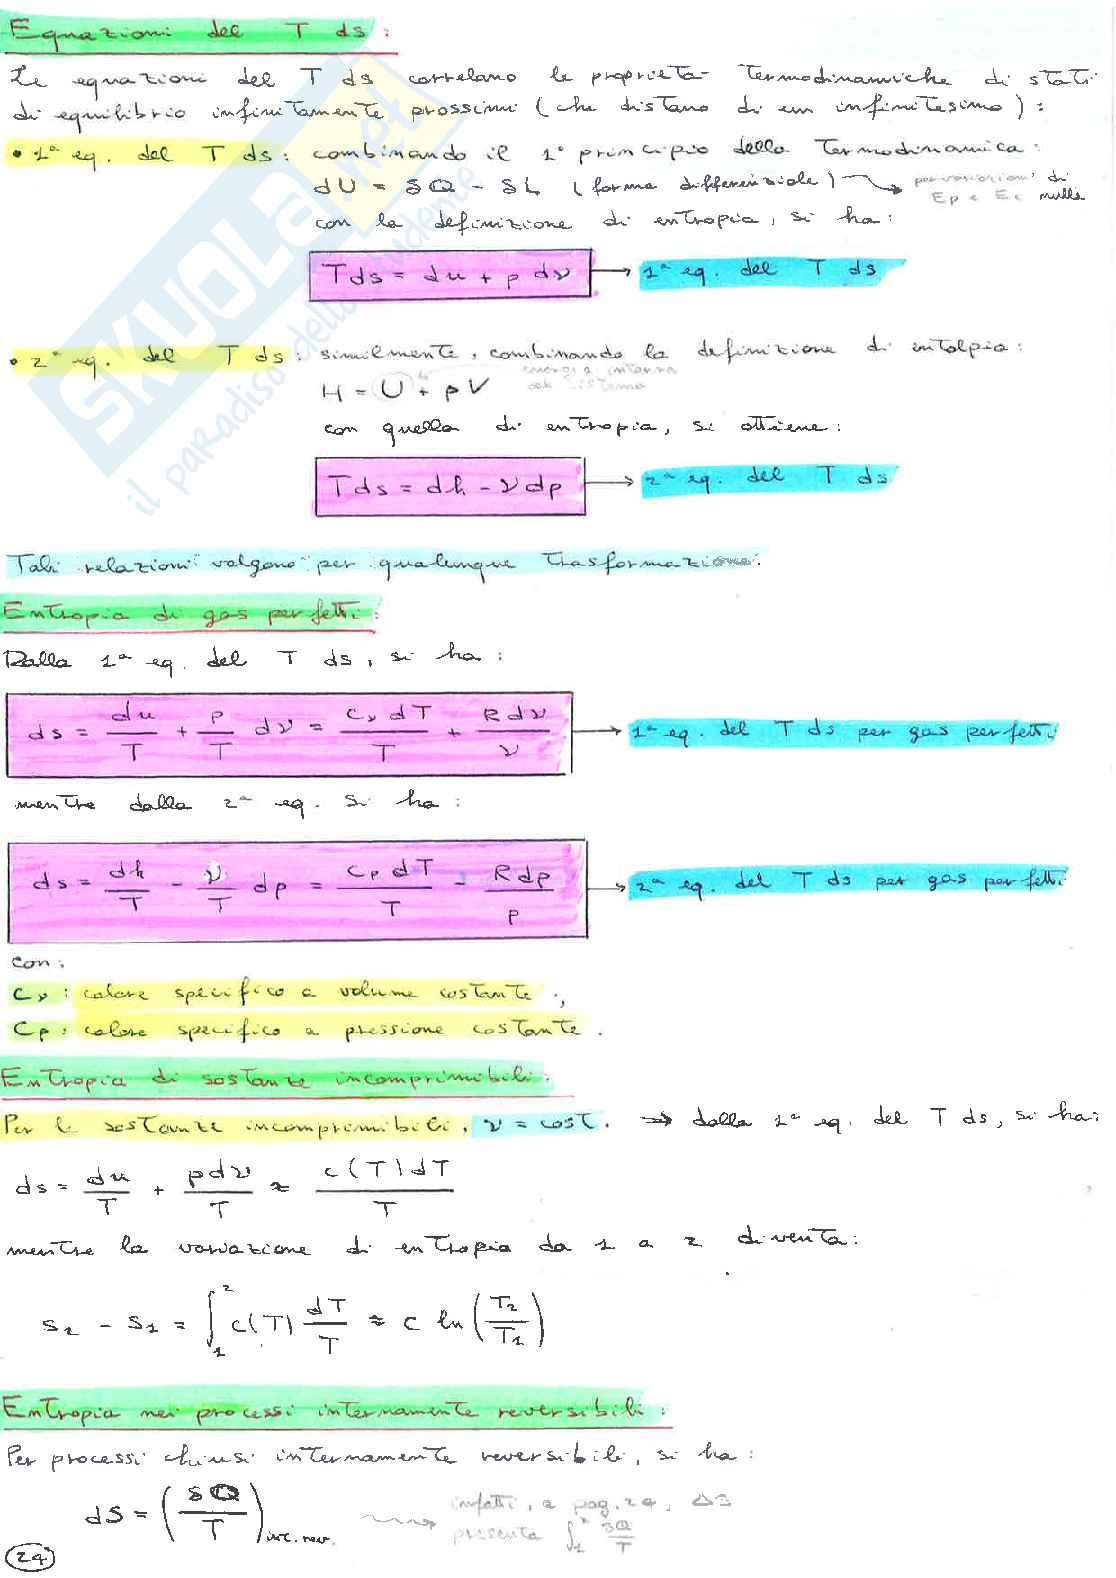 Equazioni del T ds:
Le equazioni del T ds correlano le proprietà termodinamiche di stati
di equilibrio infinitamente prossimi (che distano di un infinitesimo):
• 1ª eq. del T ds: combinando il 1° principio della Termodinamica:
dU = δQ - δL (forma differenziale) → per variazioni di Ep e Ec nulle
con la definizione di entropia, si ha:
Tds = du + p dv → 1ª eq. del T ds
• 2ª eq. del T ds: similmente, combinando la definizione di entalpia:
energia interna
H = U + pV del sistema
con quella di entropia, si ottiene:
Tds = dh - v dp → 2ª eq. del T ds
Tali relazioni valgono per qualunque trasformazione.
Entropia di gas perfetti:
Dalla 1ª eq. del T ds, si ha:
ds = du/T + p/T dv = cv dT/T + R dv/v → 1ª eq. del T ds per gas perfetti
mentre dalla 2ª eq. si ha:
ds = dh/T - v/T dp = cp dT/T - R dp/p → 2ª eq. del T ds per gas perfetti
con:
cv: calore specifico a volume costante;
cp: calore specifico a pressione costante.
Entropia di sostanze incomprimibili:
Per le sostanze incomprimibili, v = cost. → dalla 1ª eq. del T ds, si ha:
ds = du/T + pdv/T ≈ c(T)dT/T
mentre la variazione di entropia da 1 a 2 diventa:
s2 - s1 = ∫₁² c(T) dT/T ≈ c ln(T2/T1)
Entropia nei processi internamente reversibili:
Per processi chiusi internamente reversibili, si ha:
dS = (δQ/T)int. rev. → infatti, a pag. 24, ΔS
presenta ∫₁² δQ/T
24
SKUOLA.net
il paradiso dello studente